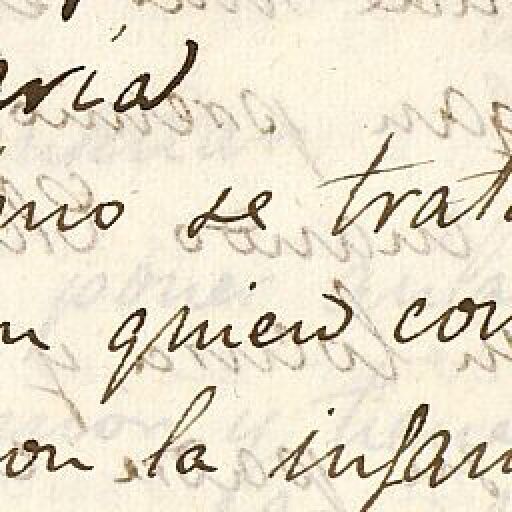 aría
mo se trat
n quien con
on la infan